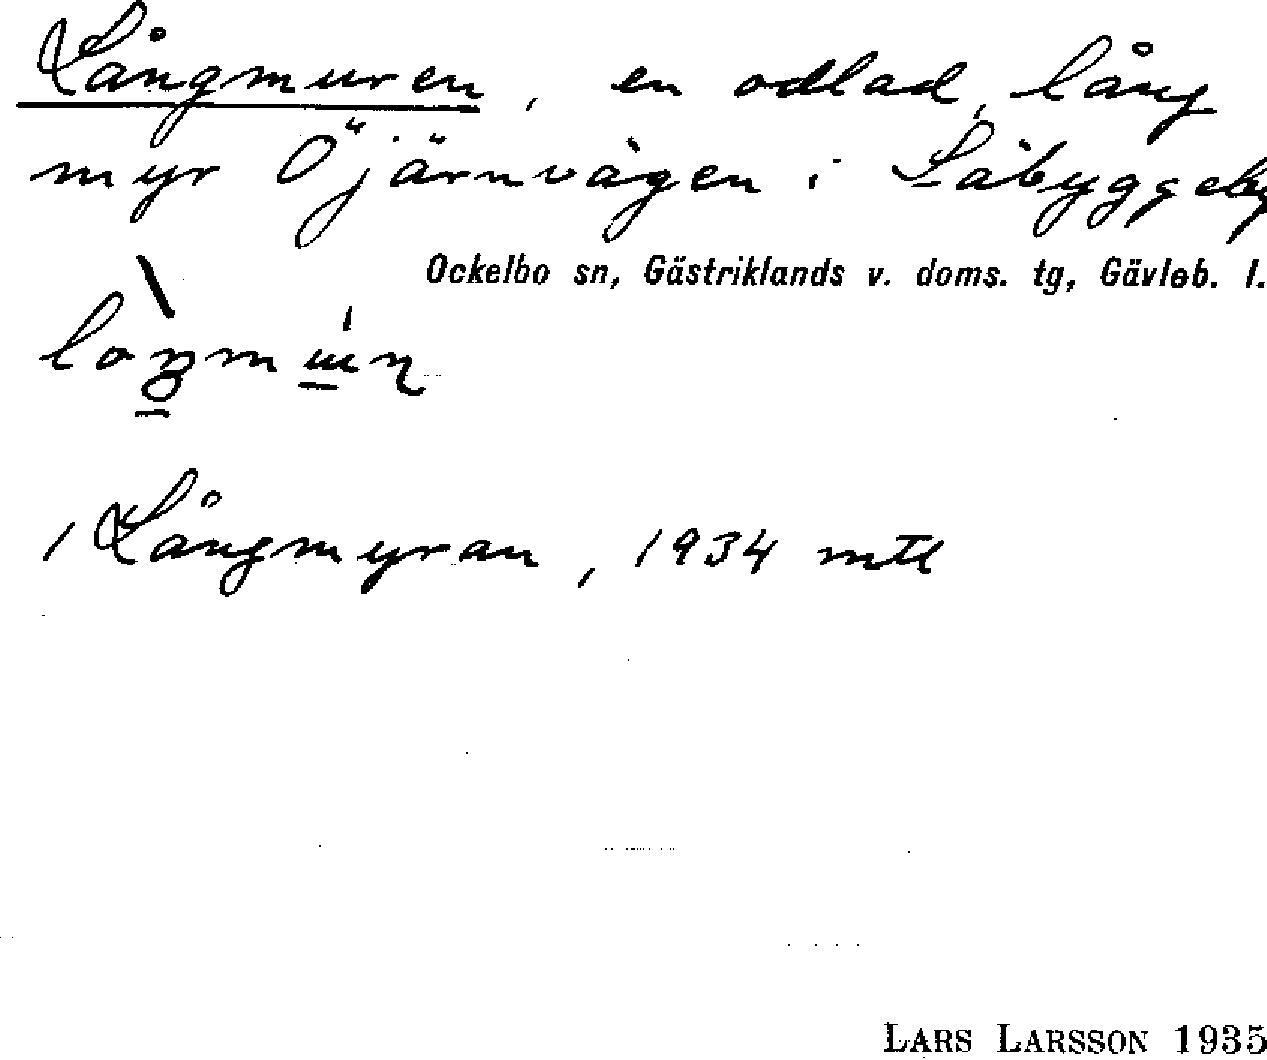 Långmuren, en odlad, lång
myr Ö järnvägen i Säbyggeby
Ockelbo sn, Gästriklands v. doms. tg, Gävleb. l.
/ Långmyran, 1934 mtl
LARS LARSSON 1935